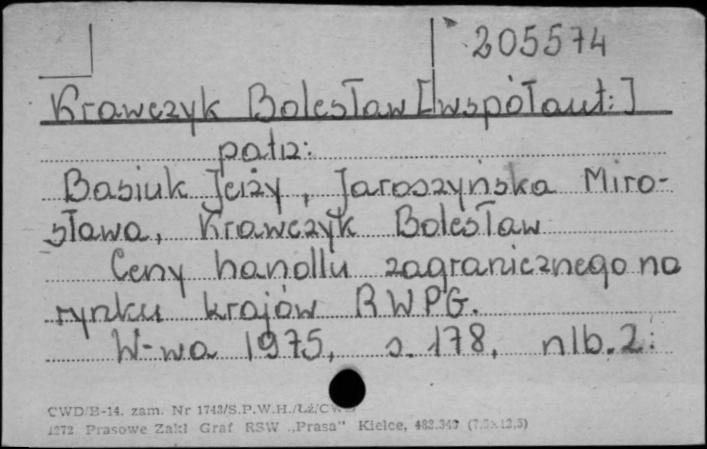 205574
Krawczyk Bolesław [współaut.]
patrz:
Basiuk Jerzy, Jaroszyńska Miro-
sława, Krawczyk Bolesław
Ceny handlu zagranicznego na
rynku krajów RWPG.
W-wa 1975, s. 178, nlb. 2.
CWD/B-14. zam. Nr 1743/S.P.W.H./Łż/
1272 Prasowe Zakł Graf RSW „Prasa" Kielce, 482.343 (7.5×12.5)